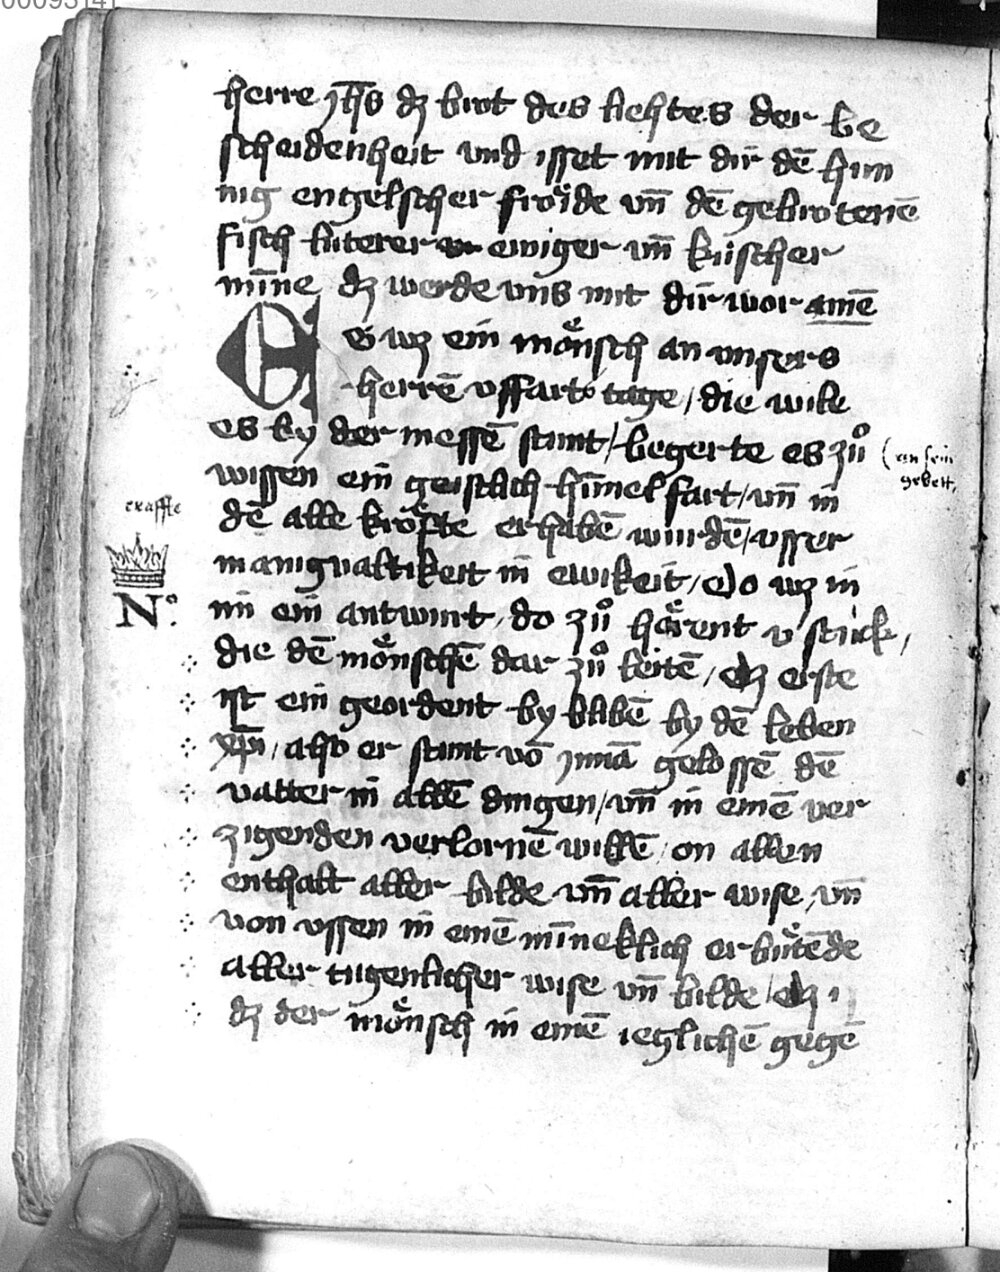 herre jhs dz brot des liehtes der be
scheidenheit vnd isset mit dir dē hun
nig engelscher froͤide vn̄ dē gebrotenē
fisch luterer ewiger vn̄ kúscher
mīne dz werde vns mit dir wor amē
ES wz ein moͤnsch an vnsers
herrē vffart tage / die wile
es by der messē stunt / begerte es zuͦ
wissen ein geistlich himelfart / vn̄ in
dē alle kroͤfte erhabē wurdē / vsser
manigualtikeit in ewikeit / Do wz in
im ein antwurt / do zuͦ hoͤrent v stuck /
die dē moͤnschē dar zuͦ leitē / dz erste
ist ein geordent by blibē by dē leben
xp̄i / also er stunt vō jnnā gelossē dē
vatter in allē dingen / vn̄ in einē ver
zigenden verlornē willē / on allen
enthalt aller bilde vn̄ aller wise / vn̄
von vssen in einē mīneklich erbietēde
aller tugenlicher wise vn̄ bilde / dz
dz der moͤnsch in einē ieglichē gegē
(an sein
gebett,
N°